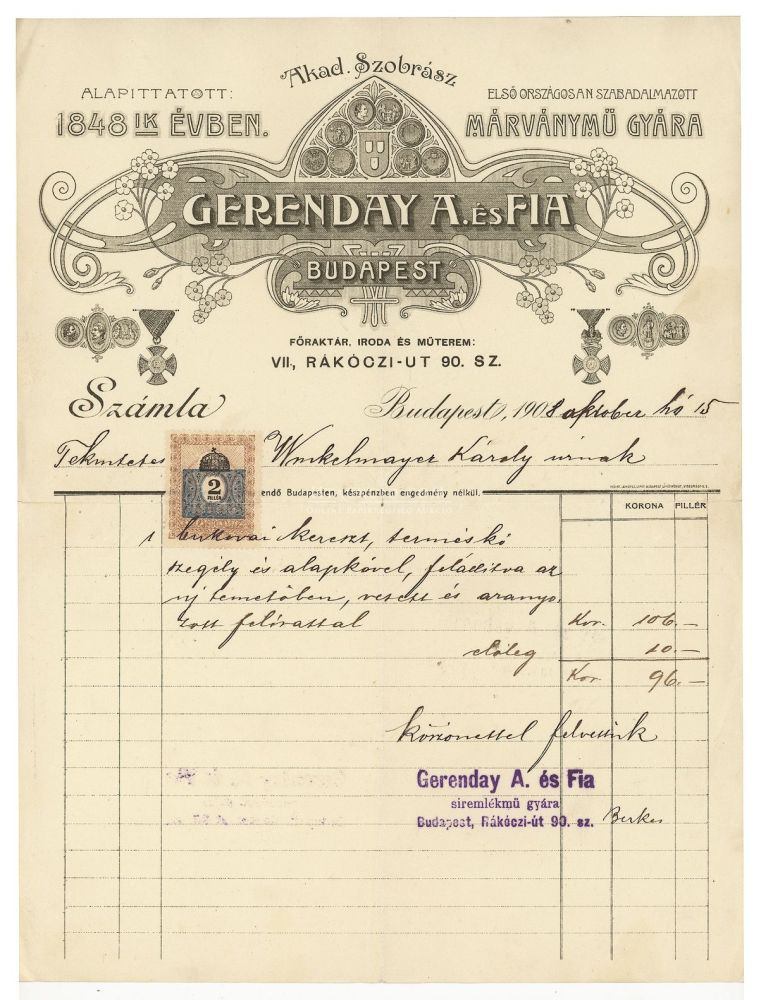 Akad. Szobrász
ALAPITTATOTT:
1848 IK ÉVBEN.
ELSŐ ORSZÁGOSAN SZABADALMAZOTT
MÁRVÁNYMŰ GYÁRA
GERENDAY A. és FIA
"BUDAPEST"
FŐRAKTÁR, IRODA ÉS MŰTEREM:
VII., RÁKÓCZI-UT 90. SZ.
Számla
Budapest, 1908 október hó 15
Tekintetes Winkelmayer Károly úrnak
2
FILLÉR
endő Budapesten, készpénzben engedmény nélkül.
KORONA FILLÉR
1 kereszt, terméskő
szegély és alapkővel, felállítva az
uj temetőben, vesett és aranyo-
zott felirattal Kor. 106.—
előleg 10.—
Kor. 96.—
köszönettel felvettük
Gerenday A. és Fia
siremlékmű gyára
Budapest, Rákóczi-út 90. sz.